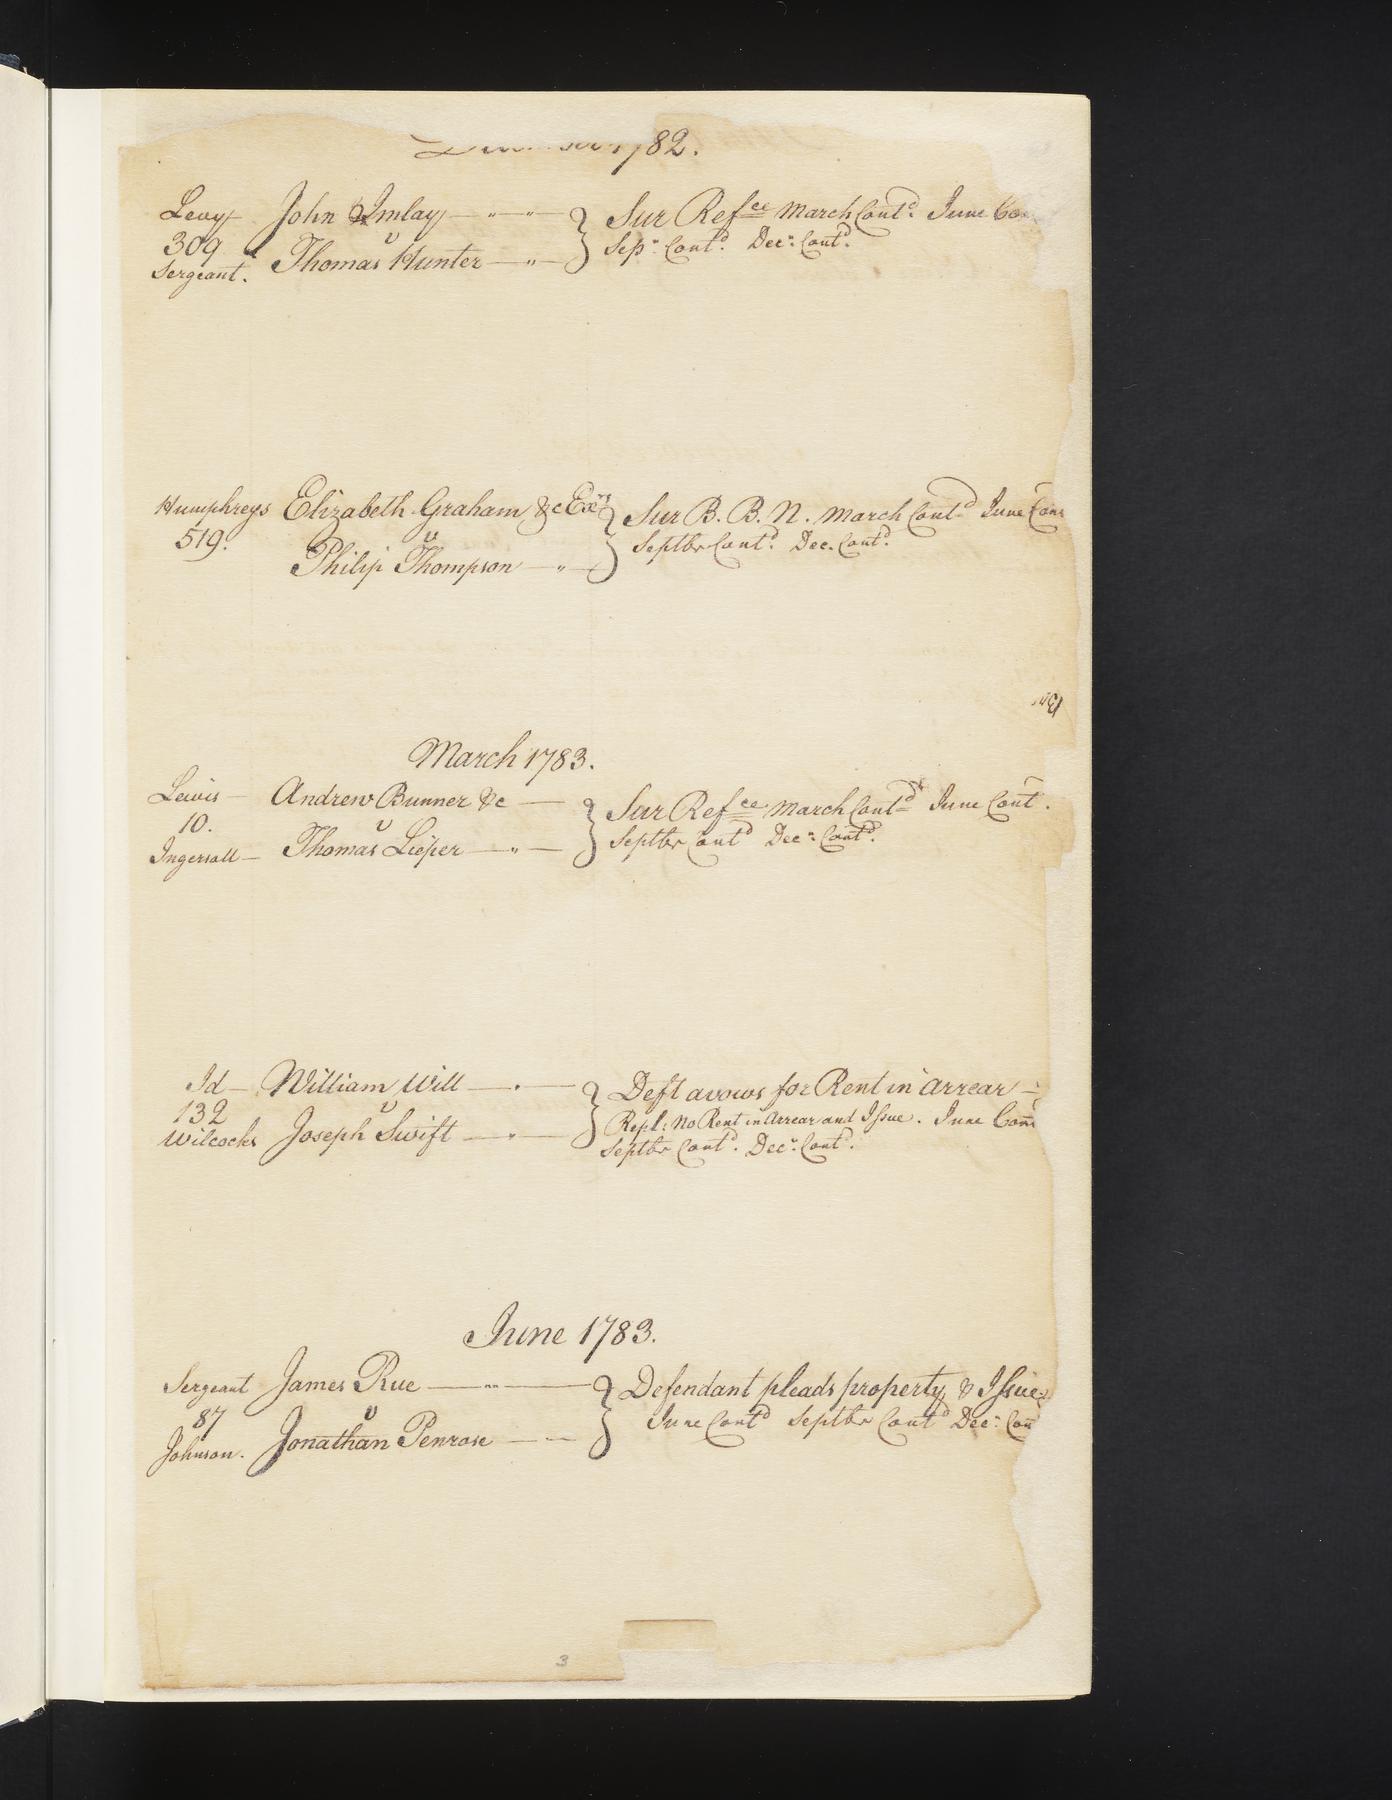 December 1782.
Levy John Imlay Sur Ref.ce March Cont.d June Con
309 v Sep.r Cont.d Dec.r Cont.d
Sergeant. Thomas Hunter
Humphreys Elizabeth Graham &c Ex.rs Sur B. B. N. March Cont.d June Con
519. v Septbr Cont.d Dec. Cont.d
Philip Thompson
March 1783.
Lewis Andrew Bunner &c Sur Ref.ce March Cont.d June Cont.
10. v Septbr Cont.d Dec.r Cont.d
Ingersoll Thomas Lieper
Id William Will Deft avows for Rent in arrear
132 v Repl: No Rent in Arrear and Issue. June Con
Wilcocks Joseph Swift Septbr Cont.d Dec.r Cont.d
June 1783.
Sergeant James Rue Defendant pleads property & Issue
87 v June Cont.d Septbr Cont.d Dec.r Con
Johnson. Jonathan Penrose
3